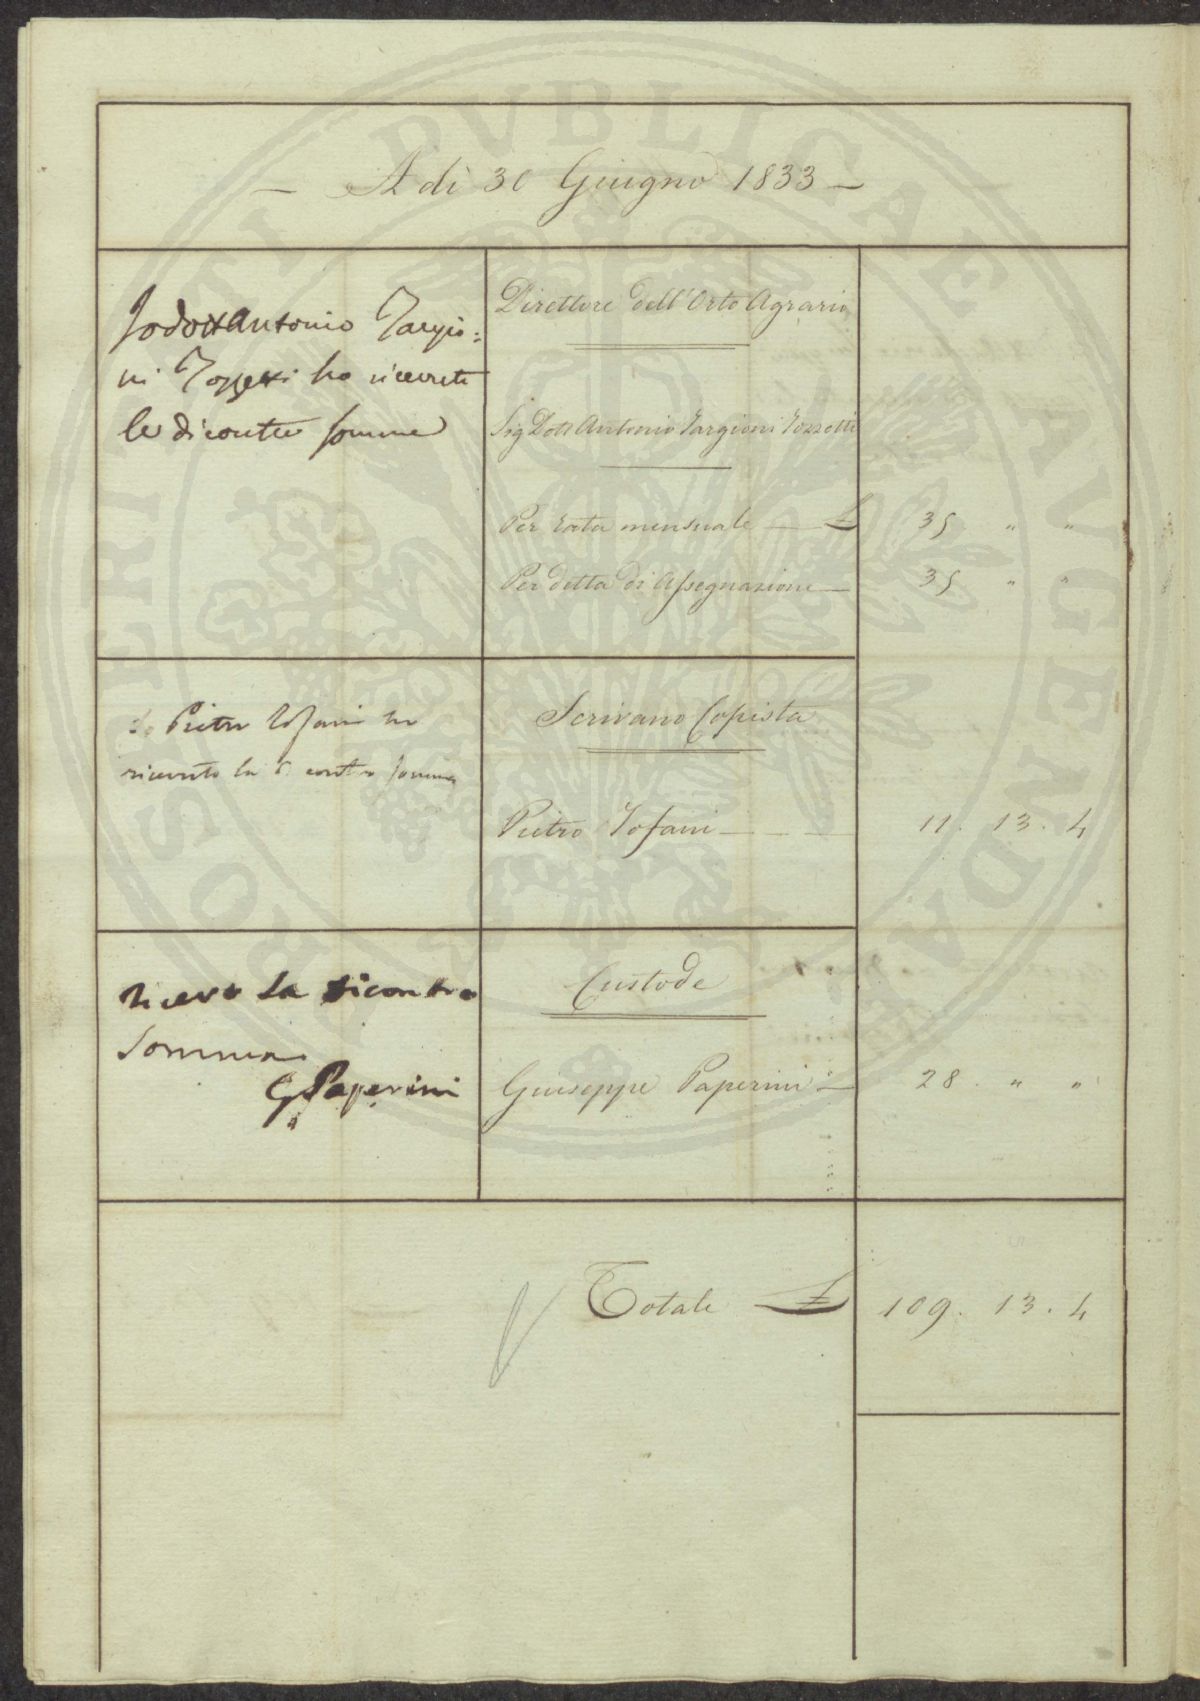 — A dì 30 Giugno 1833 —
Io Dott Antonio Targio=
ni Tozzetti ho ricevute
le di contro somme
Direttore dell'Orto Agrario
Sig Dott Antonio Targioni Tozzetti
Per rata mensuale — £ 35 " "
Per detta di Assegnazione — 35 " "
Io Pietro Tofani ho
ricevuto la di contro somma
Scrivano Copista
Pietro Tofani — — — 11. 13. 4
ricevo la dicontro
Somma
G Paperini
Custode
Giuseppe Paperini — 28 " "
Totale £ 109. 13. 4
PROSPERITATI PVBLICAE AVGENDAE